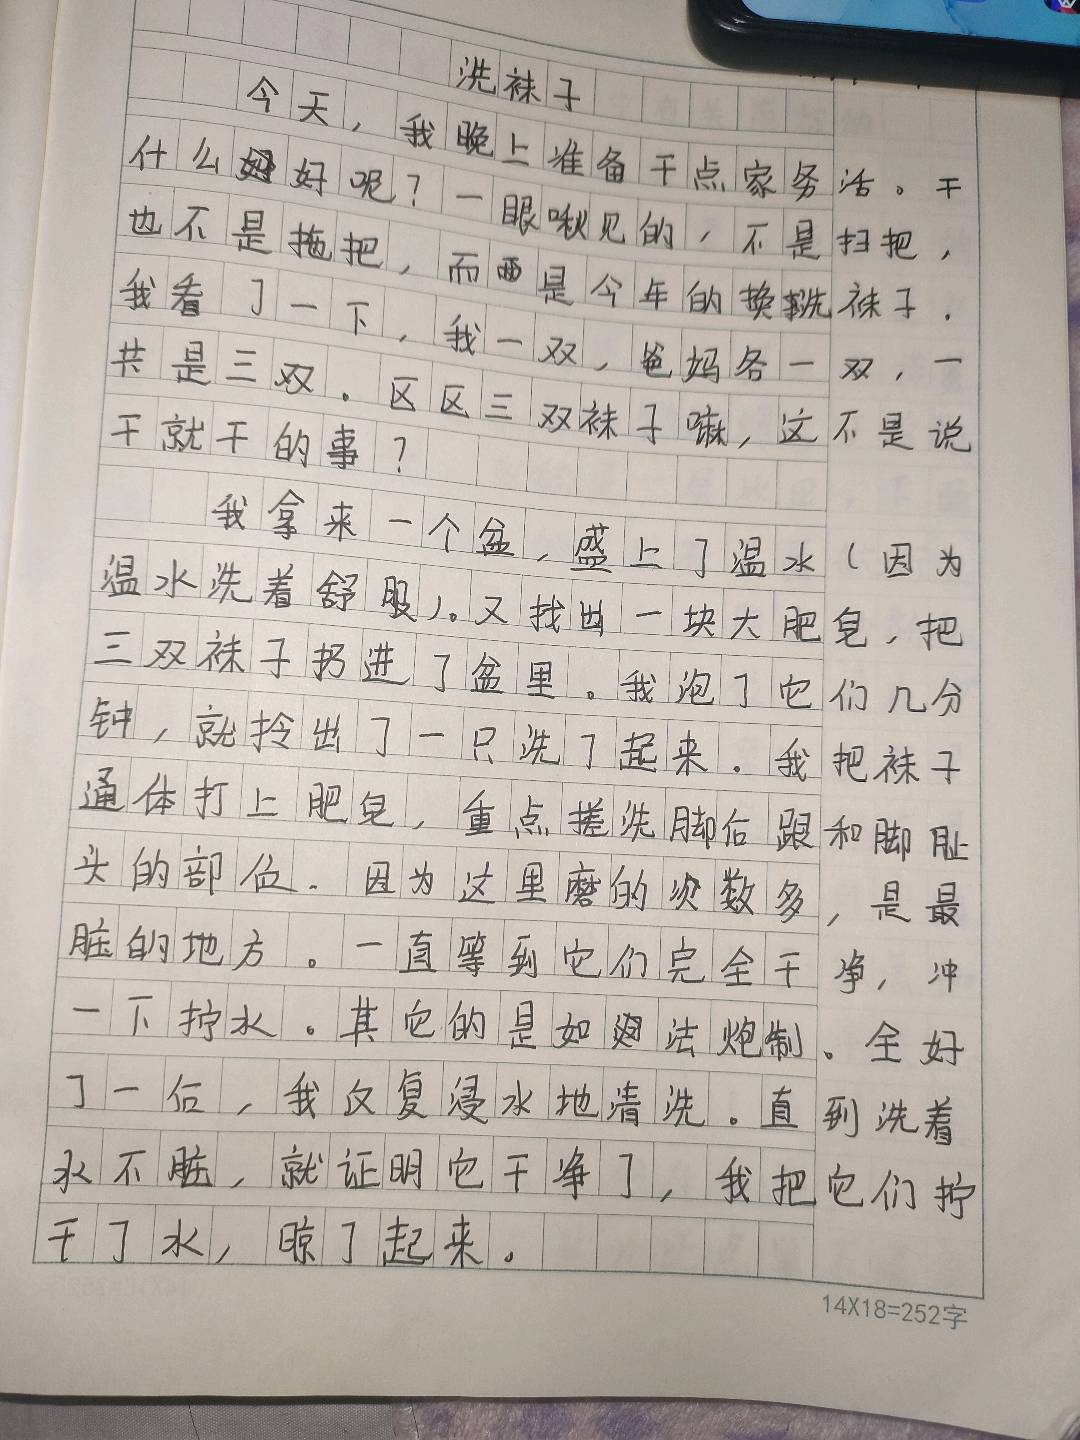 洗袜子
今天，我晚上准备干点家务活。干
什么好呢？一眼啾见的，不是扫把，
也不是拖把，而是今年的换洗袜子．
我看了一下，我一双，爸妈各一双，一
共是三双．区区三双袜子嘛，这不是说
干就干的事？
我拿来一个盆，盛上了温水（因为
温水洗着舒服）。又找出一块大肥皂，把
三双袜子扔进了盆里。我泡了它们几分
钟，就拎出了一只洗了起来．我把袜子
通体打上肥皂，重点搓洗脚后跟和脚趾
头的部位．因为这里磨的次数多，是最
脏的地方。一直等到它们完全干净，冲
一下拧水。其它的是如法炮制。全好
了一后，我又复浸水地清洗．直到洗着
水不脏，就证明它干净了，我把它们拧
干了水，晾了起来．
14X18=252字